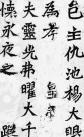 邑主仇池楊大
為孝
夫靈光弗曜大千
懷永夜之